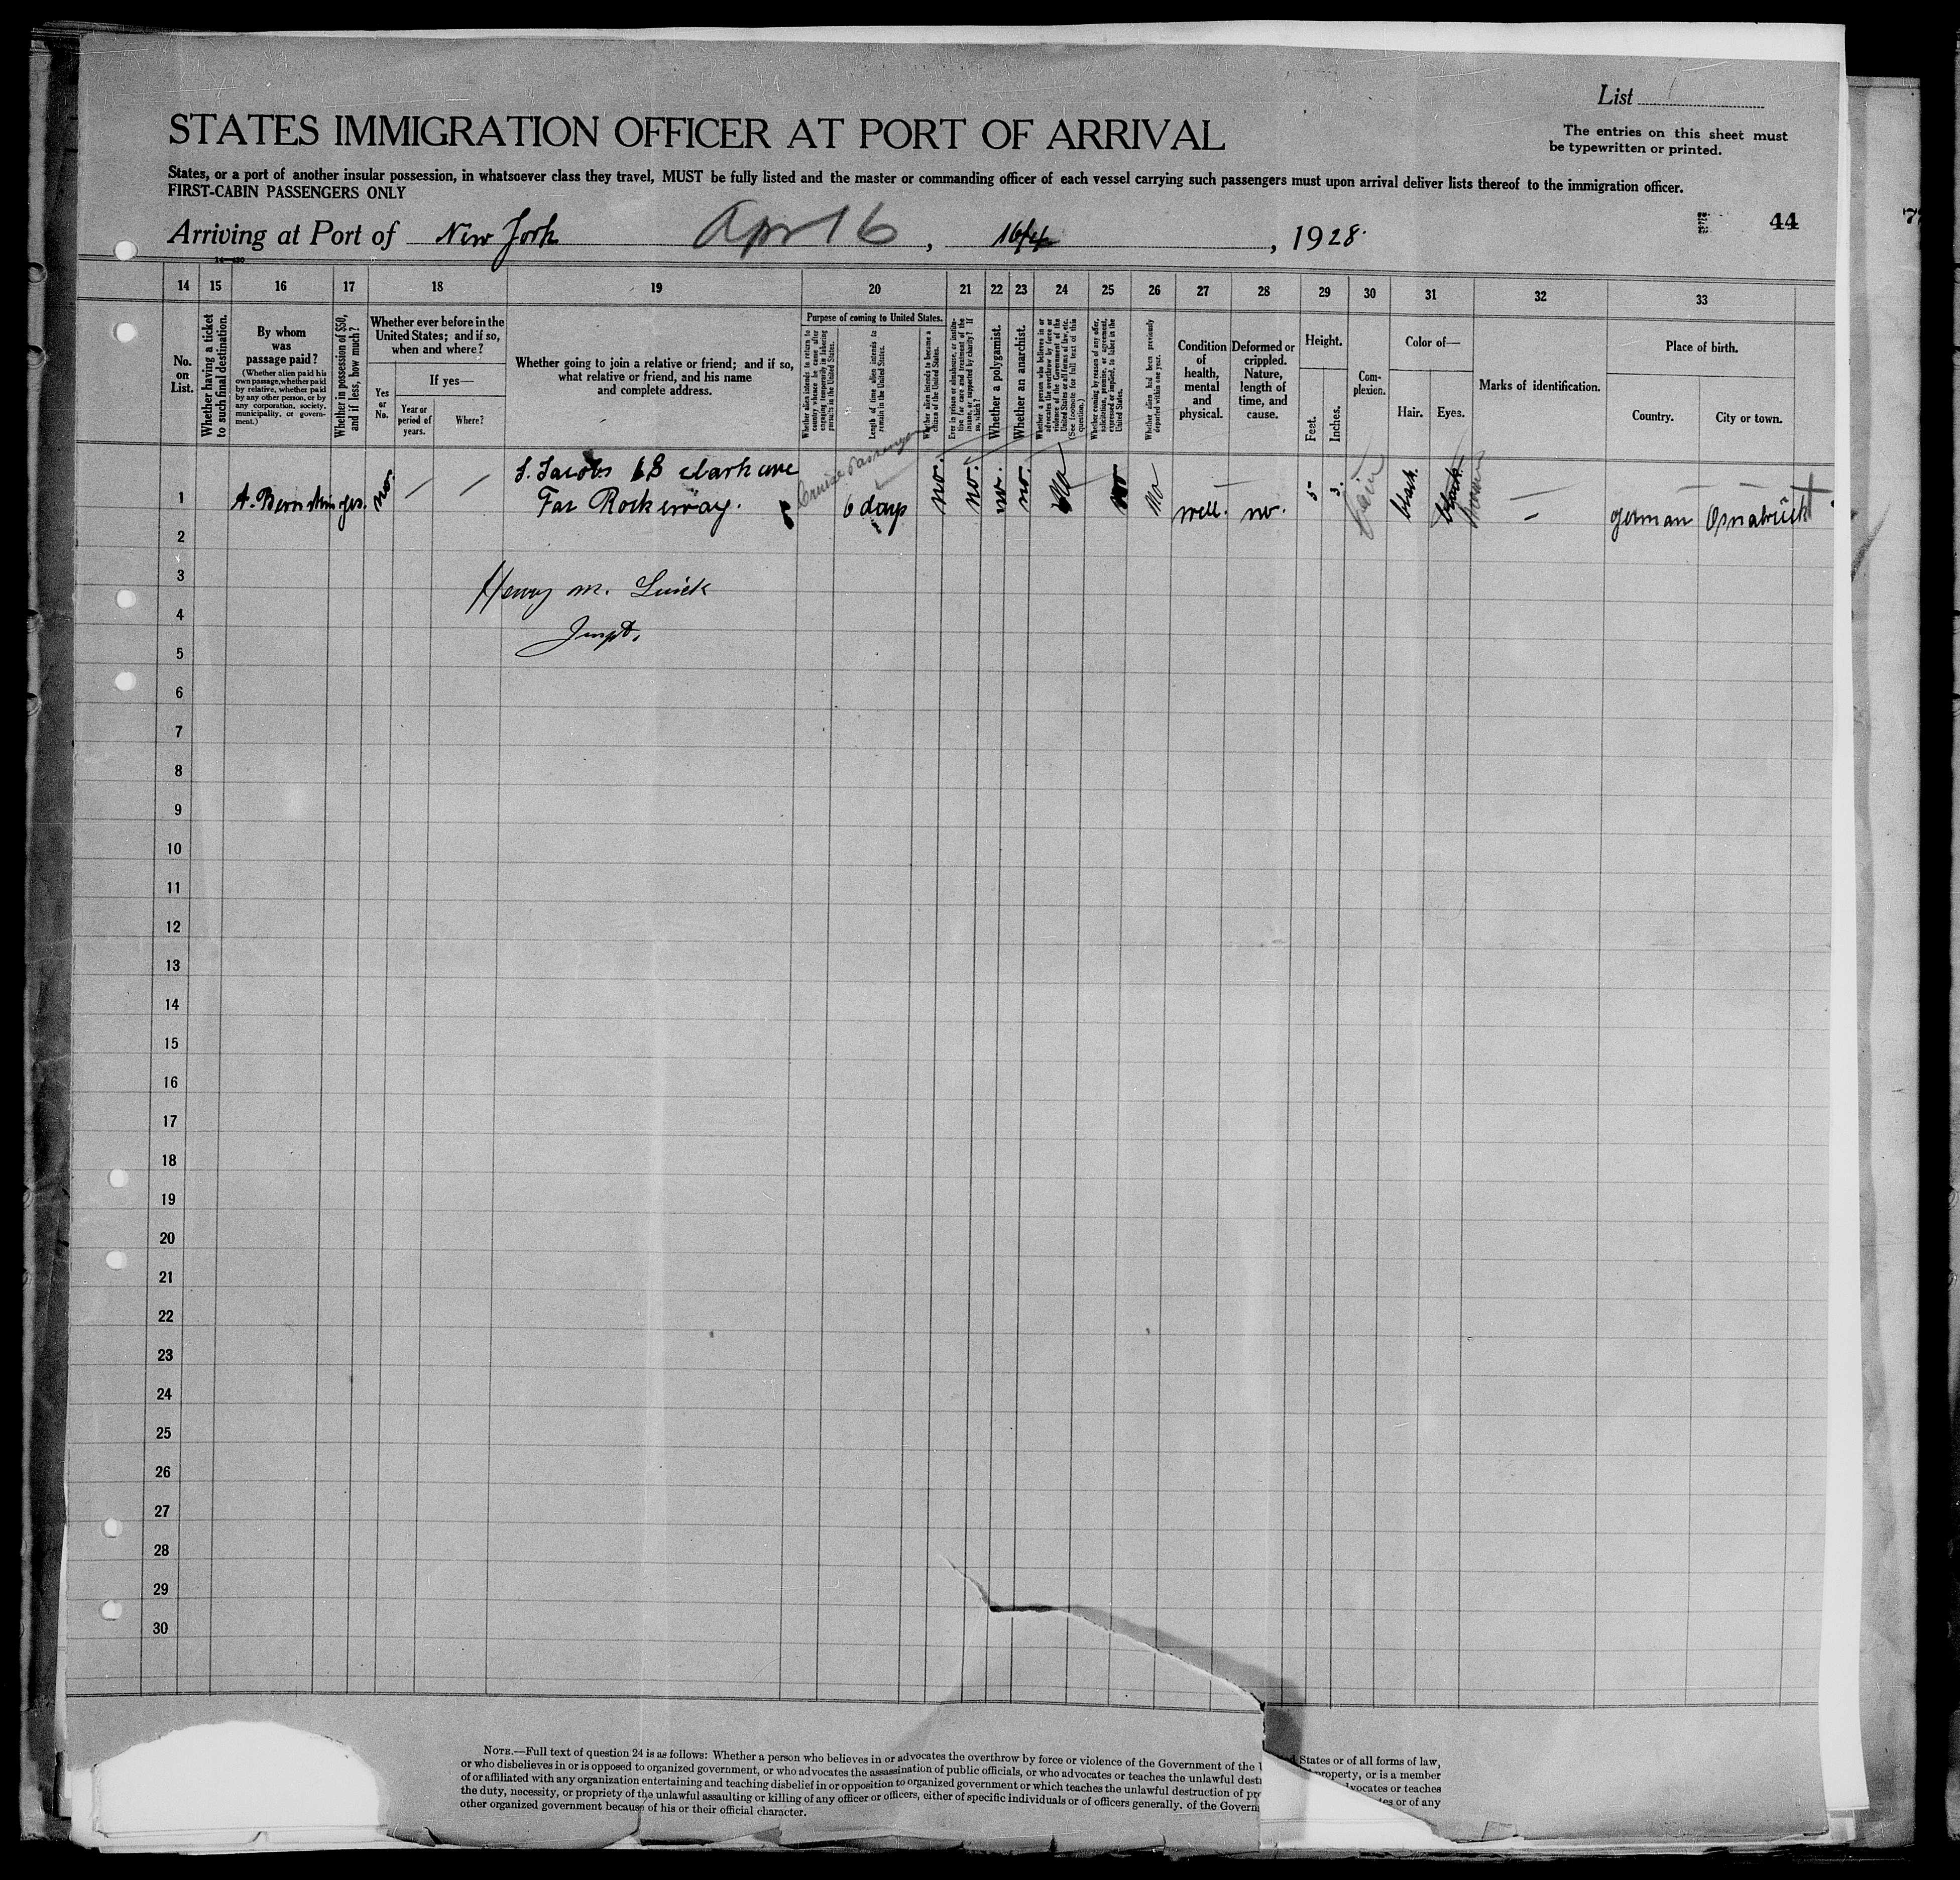 List 1
STATES IMMIGRATION OFFICER AT PORT OF ARRIVAL
The entries on this sheet must
be typewritten or printed.
States, or a port of another insular possession, in whatsoever class they travel, MUST be fully listed and the master or commanding officer of each vessel carrying such passengers must upon arrival deliver lists thereof to the immigration officer.
FIRST-CABIN PASSENGERS ONLY
Arriving at Port of New York Apr 16, , 1928.
44
14 15 16 17 18 19 20 21 22 23 24 25 26 27 28 29 30 31 32 33
No. on List.
Whether having a ticket to such final destination.
By whom was passage paid?
(Whether alien paid his own passage, whether paid by relative, whether paid by any other person, or by any corporation, society, municipality, or government.)
Whether in possession of $50, and if less, how much?
Whether ever before in the United States; and if so, when and where?
Yes or No.
If yes—
Year or period of years.
Where?
Whether going to join a relative or friend; and if so, what relative or friend, and his name and complete address.
Purpose of coming to United States.
Whether alien intends to return to country whence he came after engaging temporarily in laboring pursuits in the United States.
Length of time alien intends to remain in the United States.
Whether alien intends to become a citizen of the United States.
Ever in prison or almshouse, or institution for care and treatment of the insane, or supported by charity? If so, which?
Whether a polygamist.
Whether an anarchist.
Whether a person who believes in or advocates the overthrow by force or violence of the Government of the United States or all forms of law, etc. (See footnote for full text of this question.)
Whether coming by reason of any offer, solicitation, promise, or agreement, expressed or implied, to labor in the United States.
Whether alien had been previously deported within one year.
Condition of health, mental and physical.
Deformed or crippled. Nature, length of time, and cause.
Height.
Feet. Inches.
Complexion.
Color of—
Hair. Eyes.
Marks of identification.
Place of birth.
Country. City or town.
S. Jacobs 68 clark ave
1 A. Bernstein yes. no. — — Far Rockeway. Cruise Passenger 6 days no. no. no. no. No No well. no. 5 3. black. black brown — german Osnabrück
2
3
Henry M.
4
Inspt.
5
6
7
8
9
10
11
12
13
14
15
16
17
18
19
20
21
22
23
24
25
26
27
28
29
30
NOTE.—Full text of question 24 is as follows: Whether a person who believes in or advocates the overthrow by force or violence of the Government of the States or of all forms of law,
or who disbelieves in or is opposed to organized government, or who advocates the assassination of public officials, or who advocates or teaches the unlawful property, or is a member
of or affiliated with any organization entertaining and teaching disbelief in or opposition to organized government or which teaches the unlawful destruction of or teaches
the duty, necessity, or propriety of the unlawful assaulting or killing of any officer or officers, either of specific individuals or of officers generally, of the or of any
other organized government because of his or their official character.